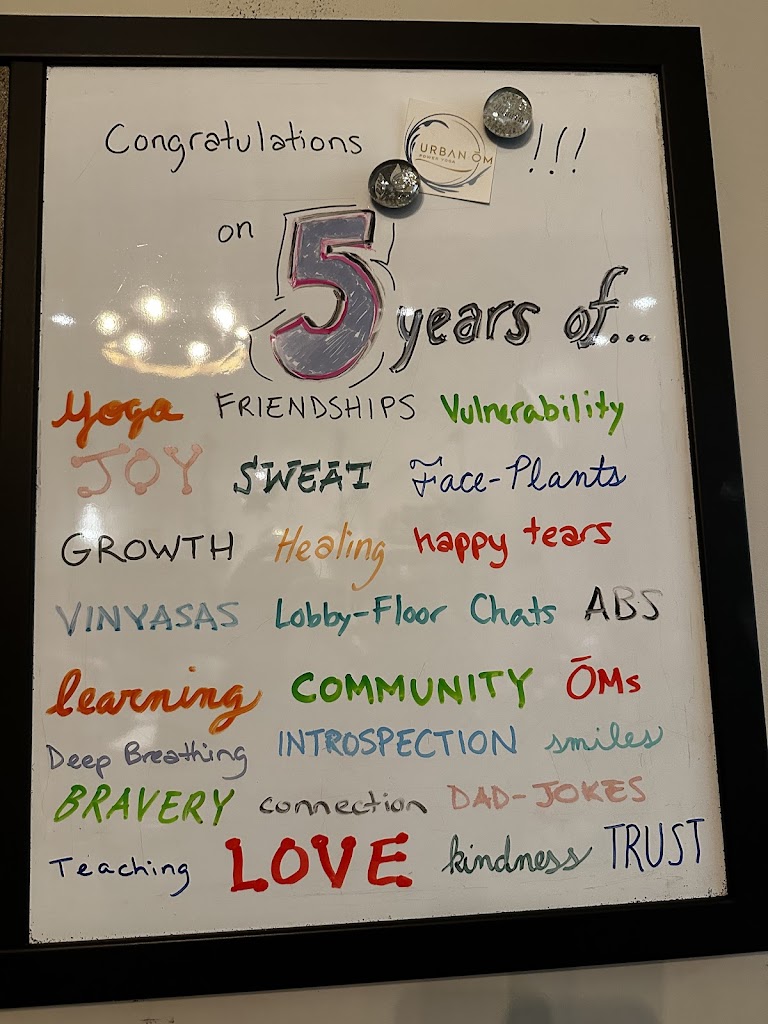 Congratulations URBAN ŌM !!!
POWER YOGA
on 5 years of...
Yoga FRIENDSHIPS Vulnerability
JOY SWEAT Face-Plants
GROWTH Healing happy tears
VINYASAS Lobby-Floor Chats ABS
learning COMMUNITY ŌMs
Deep Breathing INTROSPECTION smiles
BRAVERY connection DAD-JOKES
Teaching LOVE kindness TRUST